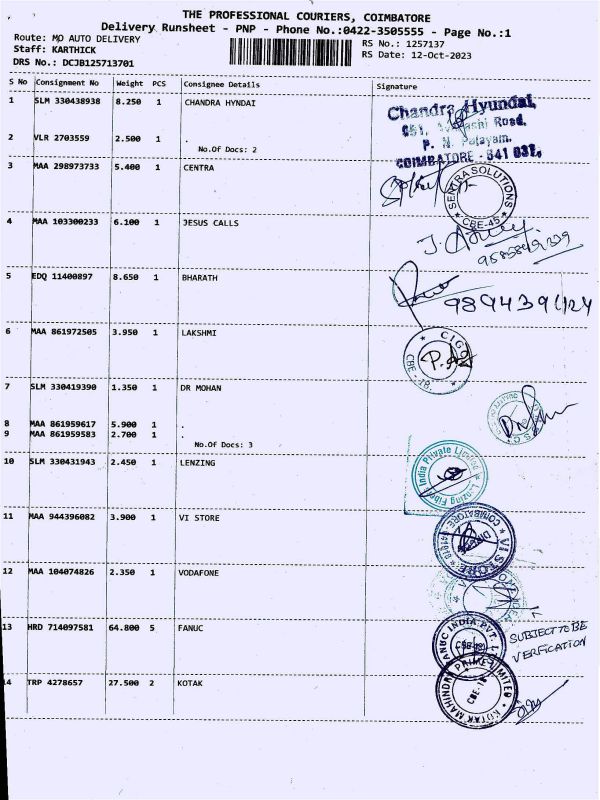 THE PROFESSIONAL COURIERS, COIMBATORE
Delivery Runsheet - PNP - Phone No.:0422-3505555 - Page No.:1
Route: MO AUTO DELIVERY
RS No.: 1257137
Staff: KARTHICK
RS Date: 12-Oct-2023
DRS No.: DCJB125713701
S No Consignment No Weight PCS Consignee Details Signature
1 SLM 330438938 8.250 1 CHANDRA HYNDAI
Chandra Hyundai,
Road,
P. N. Palayam,
COIMBATORE - 641 037.
2 VLR 2703559 2.500 1 .
No.Of Docs: 2
3 MAA 298973733 5.400 1 CENTRA
SENTRA SOLUTIONS
CBE-45
4 MAA 103300233 6.100 1 JESUS CALLS
5 EDQ 11400897 8.650 1 BHARATH
6 MAA 861972505 3.950 1 LAKSHMI
CBE-18.
7 SLM 330419390 1.350 1 DR MOHAN
8 MAA 861959617 5.900 1 .
9 MAA 861959583 2.700 1 .
No.Of Docs: 3
10 SLM 330431943 2.450 1 LENZING
India Private Limited
Lenzing Fibers
11 MAA 944396082 3.900 1 VI STORE
VI STORE
COIMBATORE
12 MAA 104074826 2.350 1 VODAFONE
13 HRD 714097581 64.800 5 FANUC
FANUC INDIA PVT. LTD
SUBJECT TO BE
VERFICATION
14 TRP 4278657 27.500 2 KOTAK
KOTAK MAHINDRA PRIME LIMITED
CBE-18